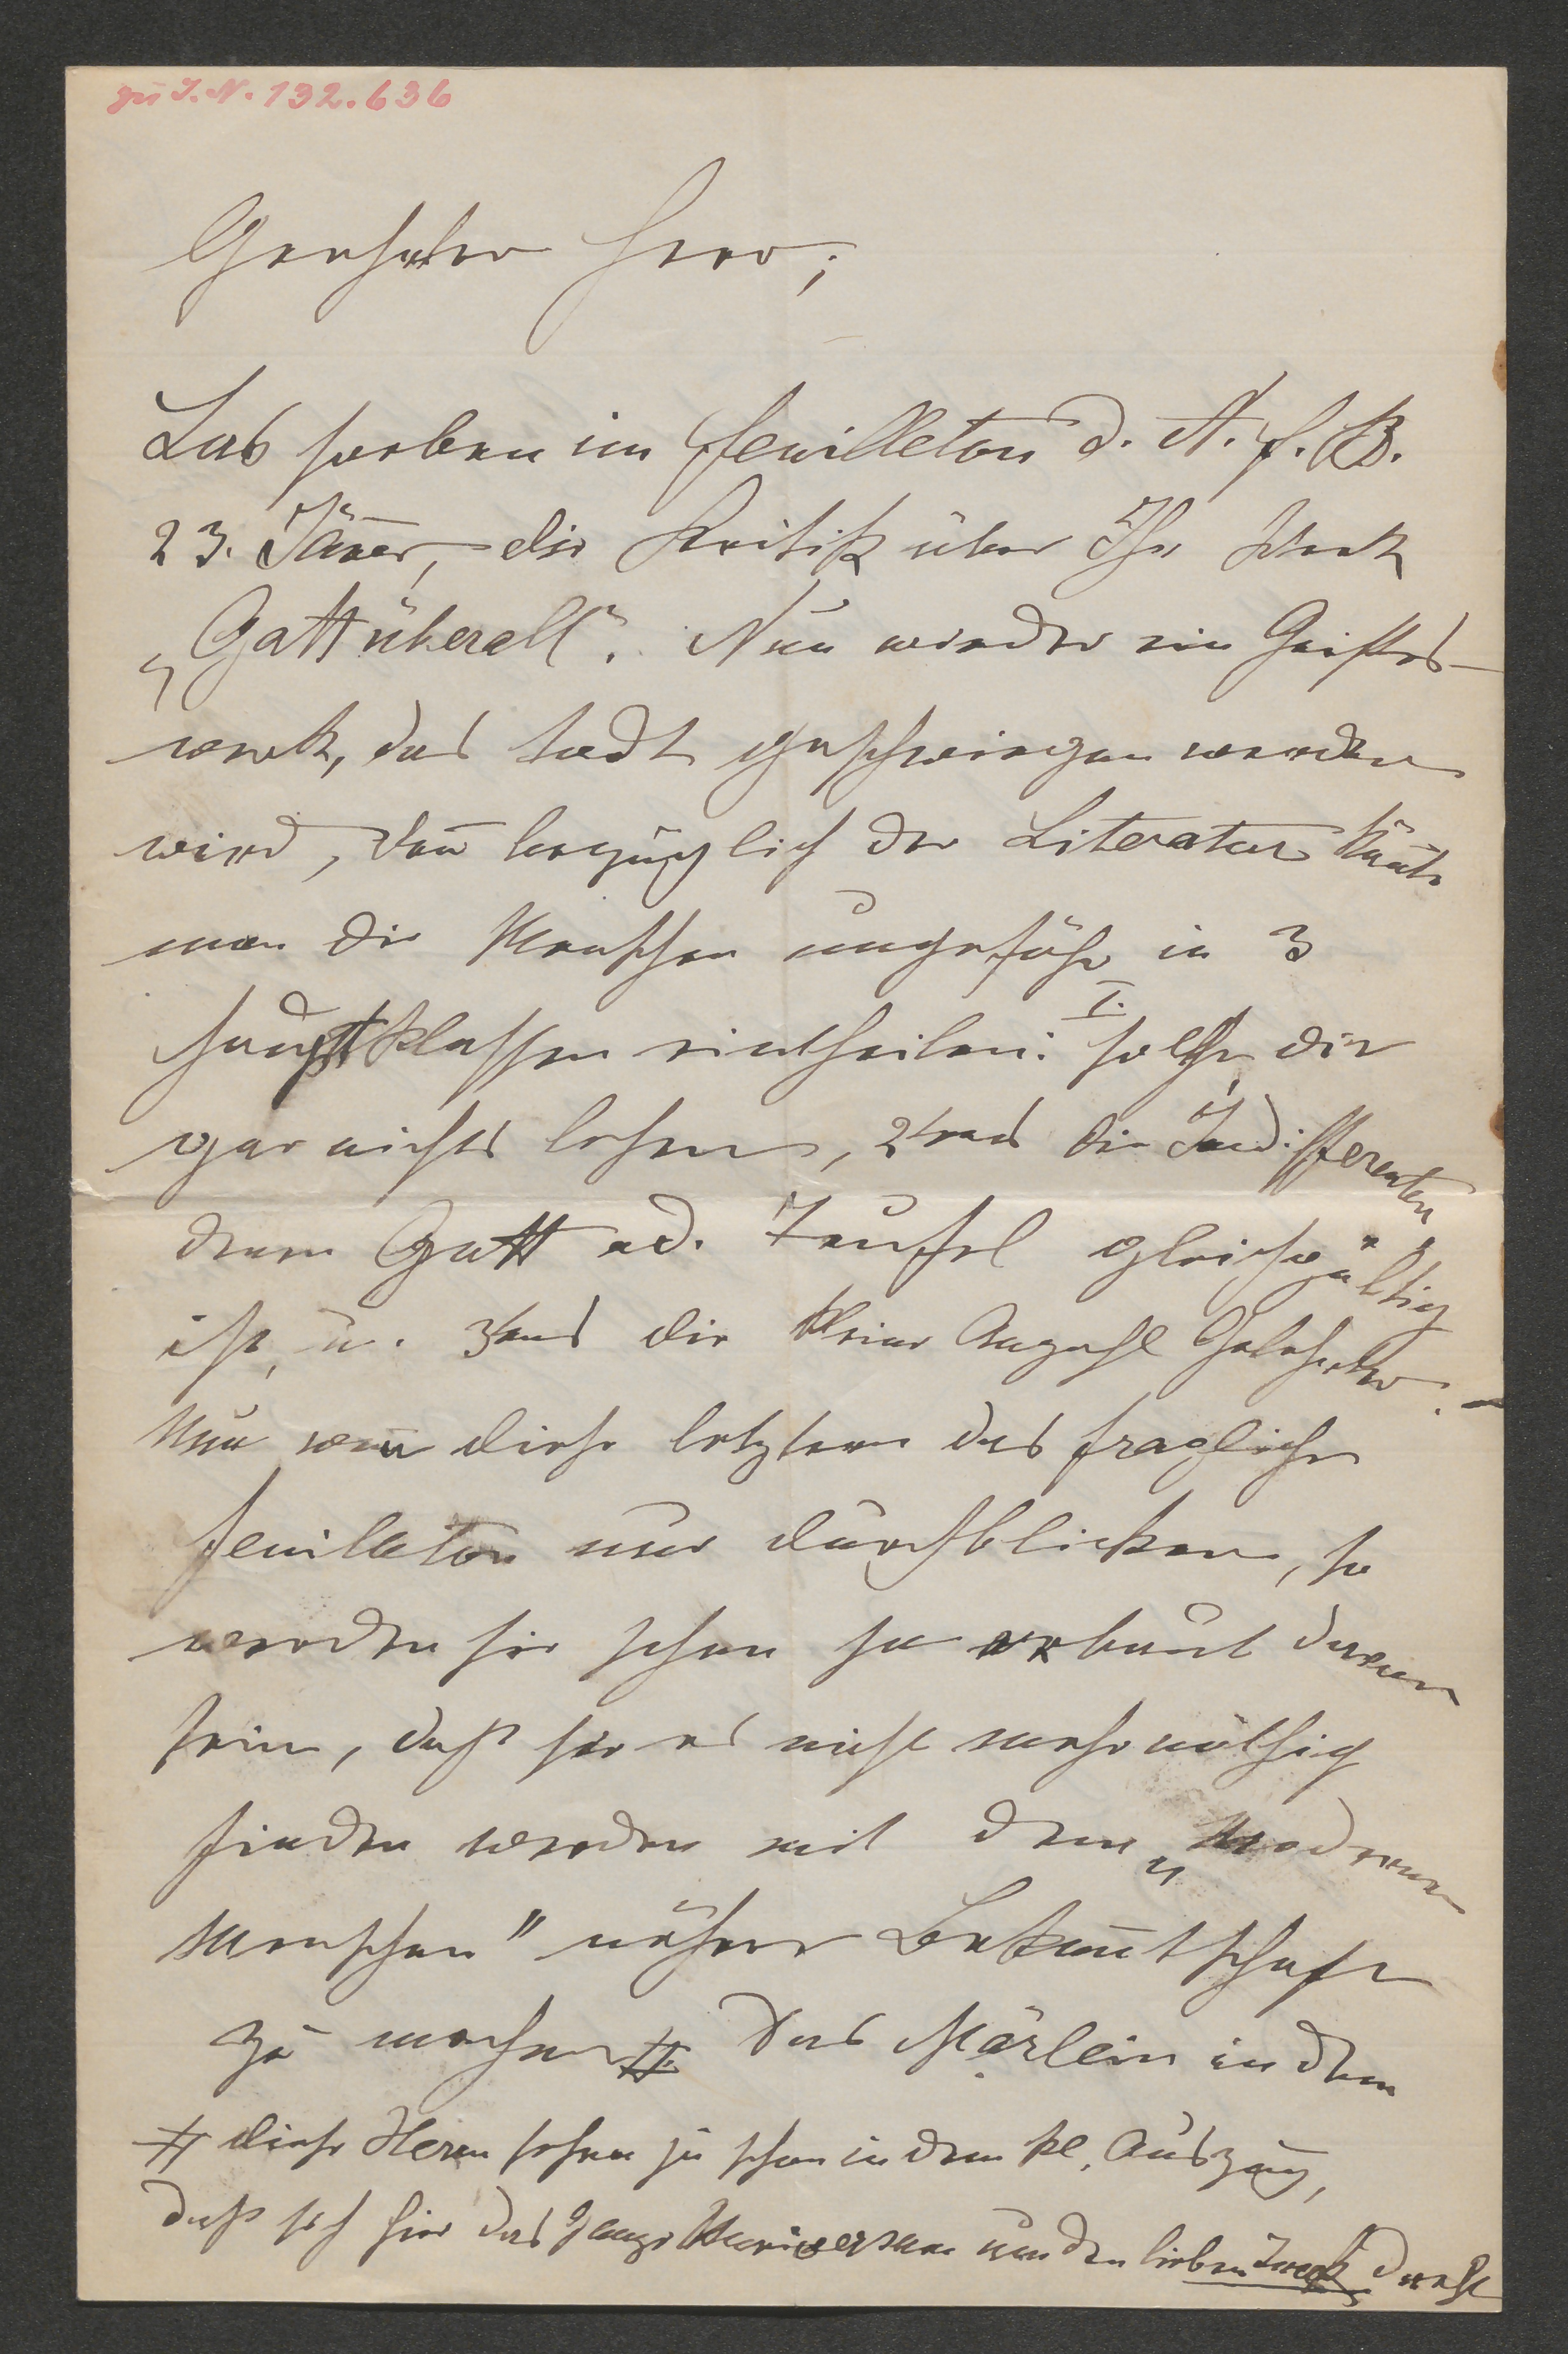 zu I.N. 132.636
Geehrter Herr;
Las soeben im Feuilleton d. N. f. P.
23. Jäner, die Kritik über Ihr Werk
„Gott überall". Nun wieder ein Geistes-
werk, das todt geschwiegen werden
wird, den̄ bezüglich der Literatur kön̄te
man die Menschen ungefähr in 3
Hauptklassen eintheilen: I. solche die
gar nichts lesen, 2tens die Indifferenten,
denen Gott od. Teufel gleichgültig
ist, u. 3tens die kleine Anzahl Gelehrter.
Nun wen̄ diese letztern das fragliche
Feuilleton nur durchblicken, so
werden sie schon so erbaut davon
sein, daß sie es nicht mehr nöthig
finden werden mit dem „modernen
Menschen" nähere Bekan̄tschaft
zu machen # Das Märlein in dem
# diese Herrn sehen ja schon in dem kl. Auszug,
daß sich hier das ganze Universum um den lieben Zweck dreht